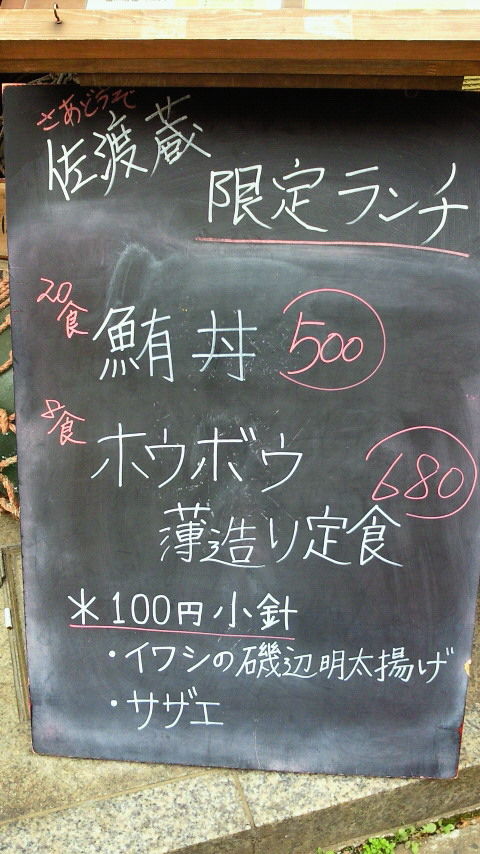 佐渡蔵
限定ランチ
20食
鮪丼 500
8食
ホウボウ 680
薄造り定食
＊100円小針
・イワシの磯辺明太揚げ
・サザエ